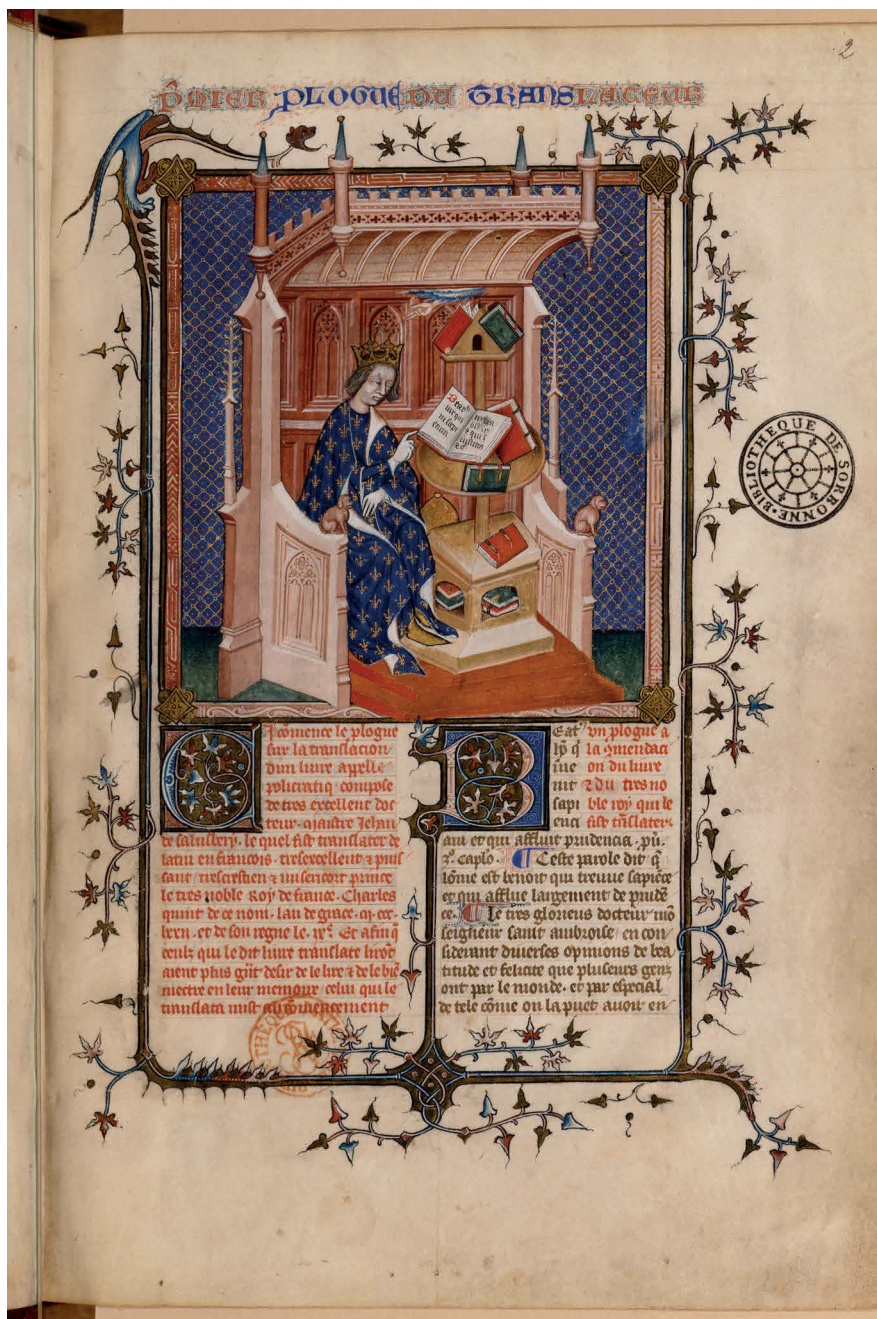 2
P̃MIER PLOGUE DU TRANSLATEUR
Beatus
BIBLIOTHEQUE DE SORBONNE
Cy cōmence le plogue
sur la translacion
dun livre apelle
policratiq̄ compose
de tres excellent doc
teur maistre Jehan
de salisbery. le quel fist translater de
latin en francois. tresexcellent ⁊ puis
sant trescrestien ⁊ misericort prince
le tres noble Roy de france. Charles
quint de ce nom. lan de grace
et de son regne le Et afin q̄
ceulx qui le dit livre translate lirōt
aient plus gñt desir de le lire ⁊ de le biē
mectre en leur memoire celui qui le
translata mist au cōmencement
vn plogue a
la 9mendaci
on du livre
⁊ du tres no
ble roy qui le
fist t̄nslater.
Beatꝰ
hō q̄
īue
nit
sapi
enci
am et qui affluit prudencia. pū.
caplo. ¶ Ceste parole dit q̄
lōme est benoit qui treuue sapiēce
et qui afflue largement de prudē
ce. ¶ Le tres glorieus docteur mō
seigneur saint ambroise en con
siderant diverses opinions de bea
titude et felicite que plusieurs genz
ont par le monde. et par especial
de tele cōme on la puet avoir en